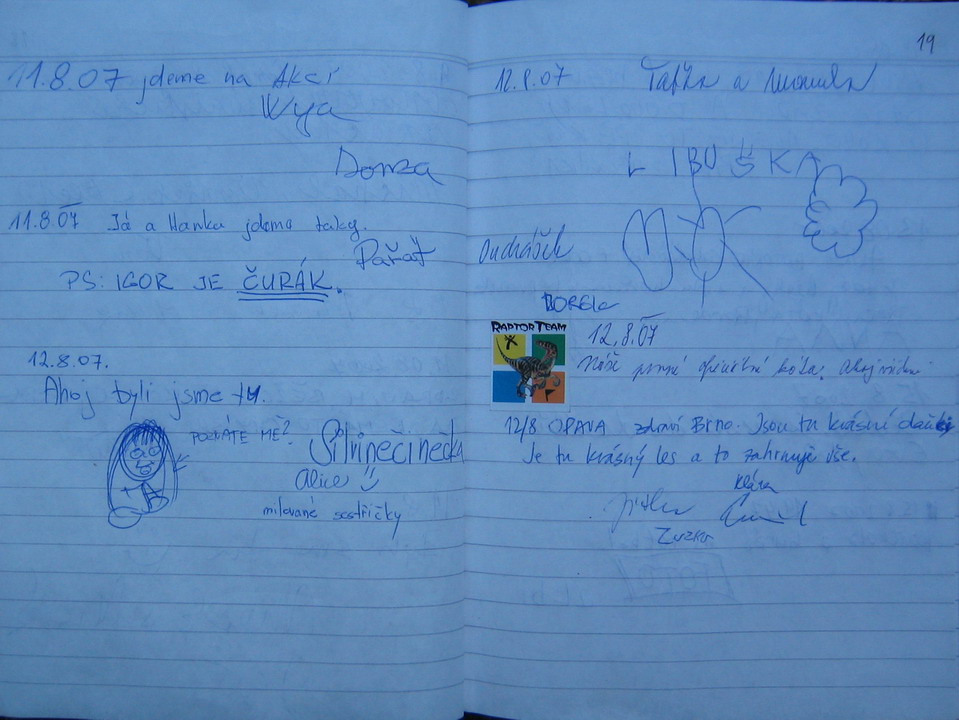 11.8.07 jdeme na Akci
Wya
Domza
11.8.07 Já a Hanka jdeme taky.
Pařať
PS: IGOR JE ČURÁK.
12.8.07.
Ahoj byli jsme tu.
POZNÁTE MĚ?
Silvinečinečka
Alice
milované sestřičky
19
12.8.07 Taťka a
LIBUŠKA
Ducháček
BOREK
RAPTOR TEAM
12.8.07
Naše první oficiální
12/8 OPAVA zdraví Brno. Jsou tu krásní
Je tu krásný les a to zahrnuje vše.
Klára
Jitka
Zuzka